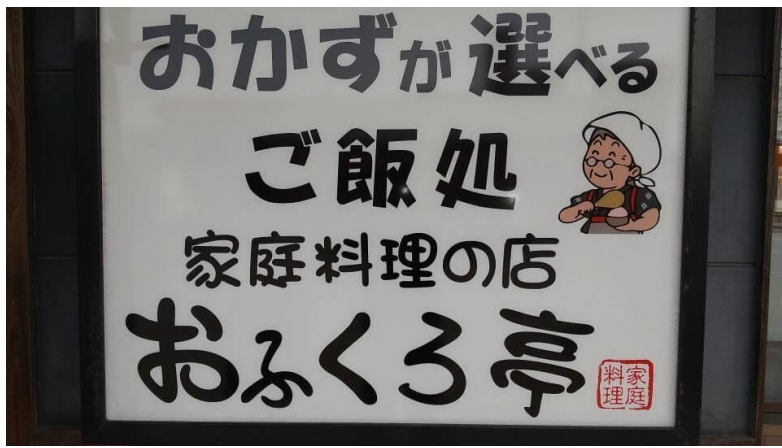 おかずが選べる
ご飯処
家庭料理の店
おふくろ亭
家庭
料理